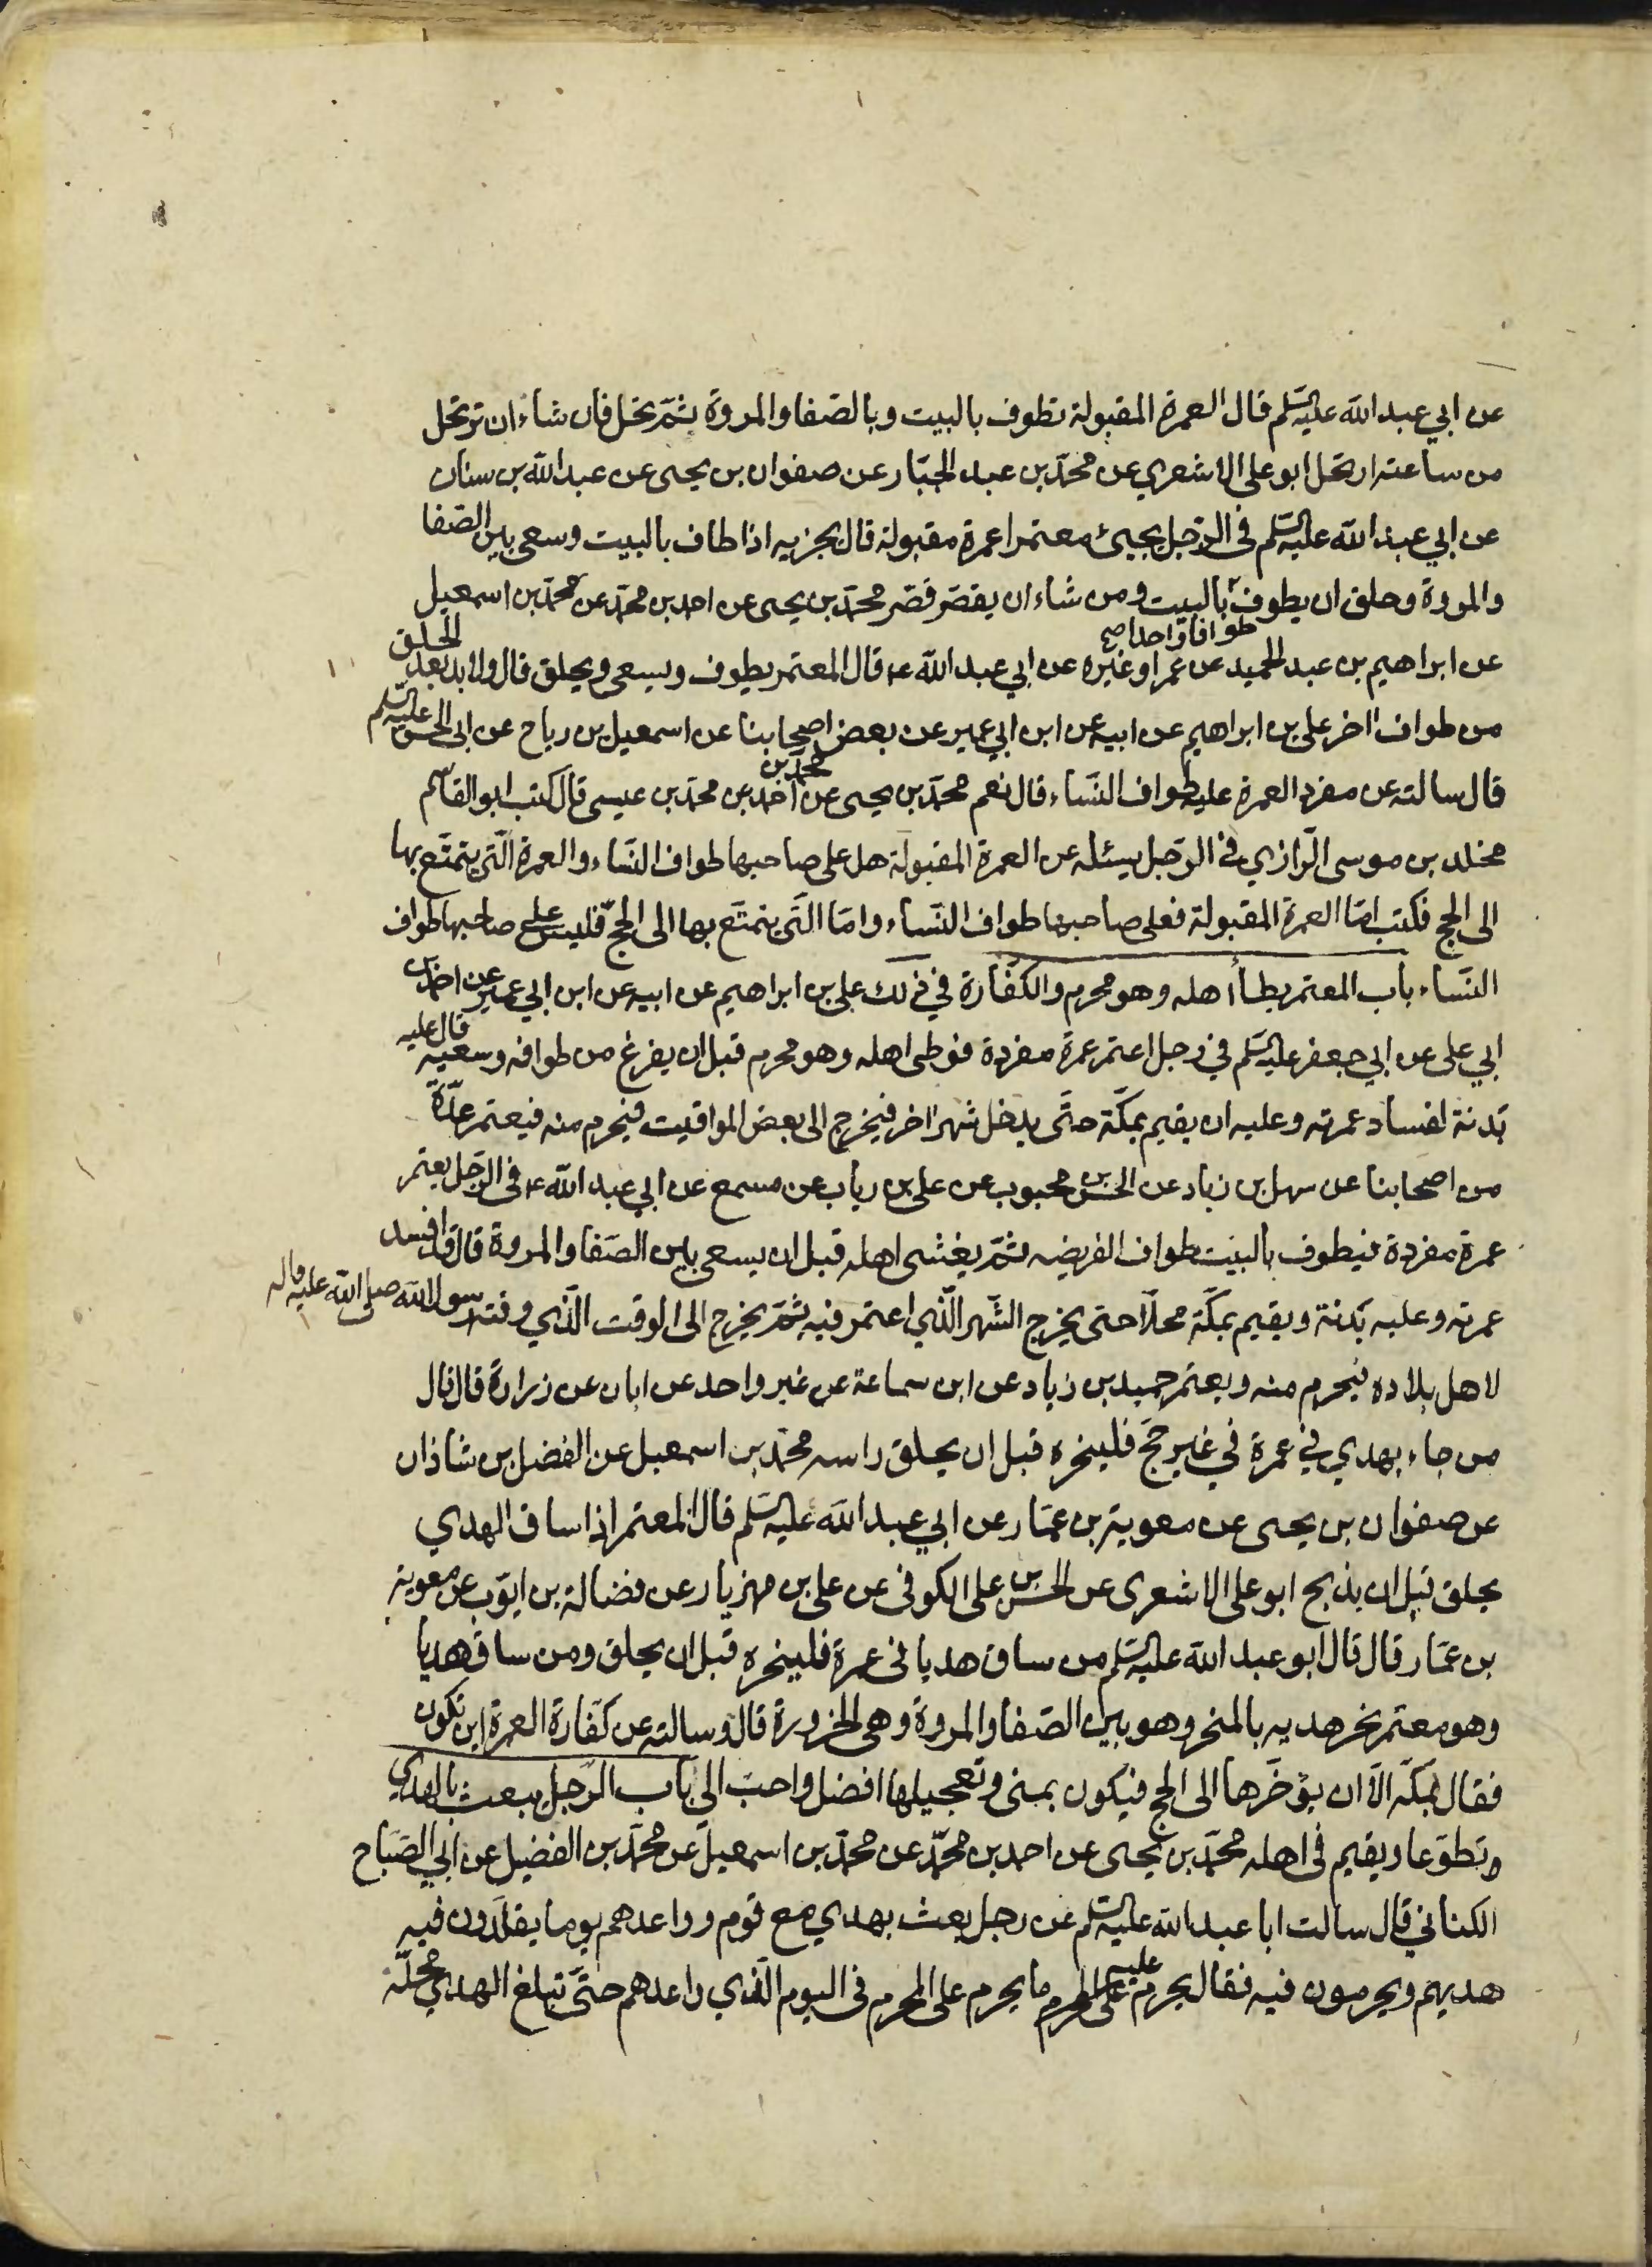 عن ابي عبد الله عليه السلم قال العمرة المقبولة تطوف بالبيت وبالصفا والمروة ثمّ تحل فان شاء ان ترتحل
من ساعته ارتحل ابو على الاشعري عن محمّد بن عبد الجبّار عن صفوان بن يحيى عن عبد الله بن سنان
عن ابي عبد الله عليه السلم فى الرّجل يجيئ معتمرا عمرة مقبولة قال يجزيه اذا طاف بالبيت وسعى بين الصّفا
والمروة وحلق ان يطوف بالبيت ومن شاء ان يقصّر قصّر محمّد بن يحيى عن احمد بن محمّد عن محمّد بن اسمعيل
طوافا واحدا صح
عن ابراهيم بن عبد الحميد عن عمر او غيره عن ابي عبد الله ع قال المعتمر يطوف ويسعى ويحلق قال ولابد بعد الحلق
من طواف اخر على بن ابراهيم عن ابيه عن ابن ابي عمير عن بعض اصحابنا عن اسمعيل بن رياح عن ابى الحسن عليه السلم
قال سالته عن مفرد العمرة عليه طواف النّساء قال نعم محمّد بن يحيى عن احمد بن محمّد بن عيسى قال كتب ابو القاسم
محمد بن
مخلد بن موسى الرّازي في الرّجل يسئله عن العمرة المقبولة هل على صاحبها طواف النّساء والعمرة الّتي يتمتّع بها
الى الحج فكتب امّا العمرة المقبولة فعلى صاحبها طواف النّساء وامّا الّتي يتمتّع بها الى الحجّ فليس على صاحبها طواف
النّساء باب المعتمر يطأ اهله وهو محرم والكفّارة في ذلك على بن ابراهيم عن ابيه عن ابن ابي عمير عن احمد بن
ابي على عن ابي جعفر عليه السلم في رجل اعتمر عمرة مفردة فوطى اهله وهو محرم قبل ان يفرغ من طوافه وسعيه قال عليه
بدنة لفساد عمرته وعليه ان يقيم بمكّة حتّى يدخل شهر اخر فيخرج الى بعض المواقيت فيحرم منه فيعتمر عدّة
من اصحابنا عن سهل بن زياد عن الحسن بن محبوب عن على بن رياب عن مسمع عن ابي عبد الله ع فى الرّجل يعتمر
عمرة مفردة فيطوف بالبيت طواف الفريضه ثمّ يغشى اهله قبل ان يسعى بين الصّفا والمروة قال قد افسد
عمرته وعليه بدنة ويقيم بمكّة محلّا حتى يخرج الشّهر الّذي اعتمر فيه ثمّ يخرج الى الوقت الّذي وقته رسول الله صلى الله عليه واله
لاهل بلاده فيحرم منه ويعتمر حميد بن زياد عن ابن سماعة عن غير واحد عن ابان عن زرارة قال قال
من جاء بهدي في عمرة في غير حجّ فلينحره قبل ان يحلق راسه محمّد بن اسمعيل عن الفضل بن شاذان
عن صفوان بن يحيى عن معوية بن عمّار عن ابي عبد الله عليه السلم قال المعتمر اذا ساق الهدي
يحلق قبل ان يذبح ابو على الاشعرى عن الحسن بن على الكوفى عن على بن مهزيار عن فضالة بن ايوّب عن معوية
بن عمّار قال قال ابو عبد الله عليه السلم من ساق هديا فى عمرة فلينحره قبل ان يحلق ومن ساق هديا
وهو معتمر نحر هديه بالمنحر وهو بين الصّفا والمروة وهى الحزورة قال وسالته عن كفّارة العمرة اين تكون
فقال بمكّة الّا ان يؤخّرها الى الحج فيكون بمنى وتعجيلها افضل واحبّ الى باب الرّجل يبعث بالهدي
وتطوّعا ويقيم فى اهله محمّد بن يحيى عن احمد بن محمّد عن محمّد بن اسمعيل عن محمّد بن الفضيل عن ابي الصّباح
الكناني قال سالت ابا عبد الله عليه السلم عن رجل بعث بهدي مع قوم وواعدهم يوما يقلّدون فيه
هديهم ويحرمون فيه فقال يحرم عليه على المحرم ما يحرم على المحرم فى اليوم الّذي واعدهم حتّى تبلغ الهدي محلّه